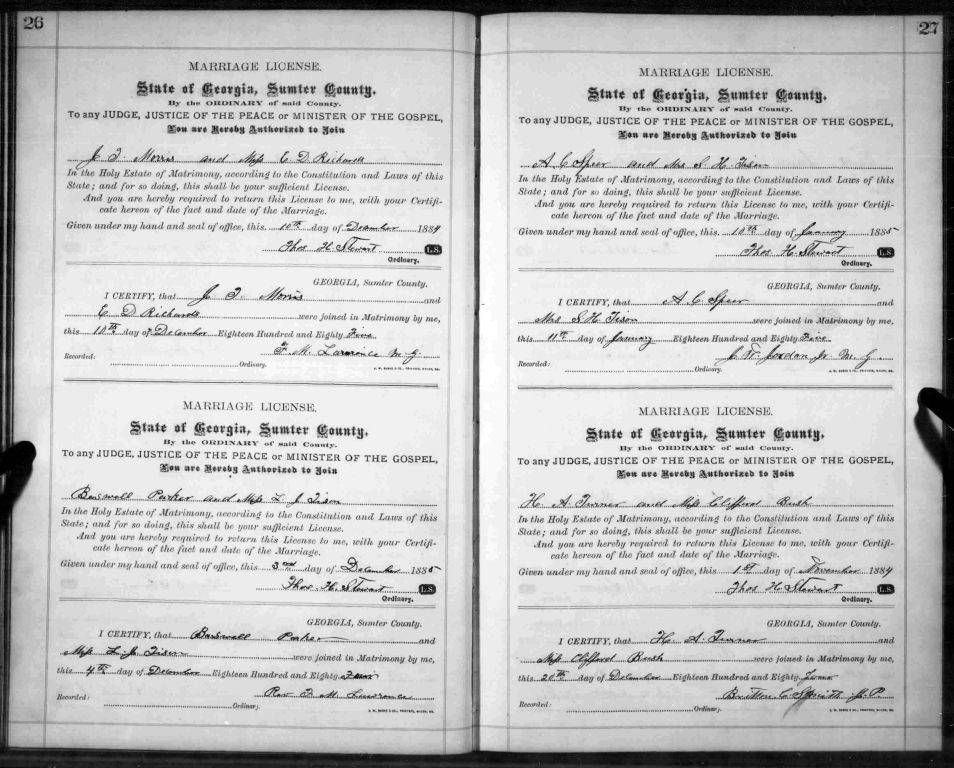 26
MARRIAGE LICENSE.
State of Georgia, Sumter County.
By the ORDINARY of said County.
To any JUDGE, JUSTICE OF THE PEACE or MINISTER OF THE GOSPEL,
You are Hereby Authorized to Join
J. T. Morris and Miss E D Richards
In the Holy Estate of Matrimony, according to the Constitution and Laws of this
State; and for so doing, this shall be your sufficient License.
And you are hereby required to return this License to me, with your Certifi-
cate hereon of the fact and date of the Marriage.
Given under my hand and seal of office, this 10th day of December 1884
Thos H. Stewart L.S.
Ordinary.
GEORGIA, Sumter County.
I CERTIFY, that J. T. Morris and
E D Richards were joined in Matrimony by me,
this 10th day of December Eighteen Hundred and Eighty Five
F. M. Lawrence M. G.
Recorded:
Ordinary.
MARRIAGE LICENSE.
State of Georgia, Sumter County.
By the ORDINARY of said County.
To any JUDGE, JUSTICE OF THE PEACE or MINISTER OF THE GOSPEL,
You are Hereby Authorized to Join
Parker and Miss L. J. Tison
In the Holy Estate of Matrimony, according to the Constitution and Laws of this
State; and for so doing, this shall be your sufficient License.
And you are hereby required to return this License to me, with your Certifi-
cate hereon of the fact and date of the Marriage.
Given under my hand and seal of office, this 3rd day of December 1885
Thos. H. Stewart L.S.
Ordinary.
GEORGIA, Sumter County.
I CERTIFY, that Parker and
Miss L. J. Tison were joined in Matrimony by me,
this 4th day of December Eighteen Hundred and Eighty
Rev F. M. Lawrence
Recorded:
Ordinary.
27
MARRIAGE LICENSE.
State of Georgia, Sumter County.
By the ORDINARY of said County.
To any JUDGE, JUSTICE OF THE PEACE or MINISTER OF THE GOSPEL,
You are Hereby Authorized to Join
A C Speer and Mrs S. H. Tison
In the Holy Estate of Matrimony, according to the Constitution and Laws of this
State; and for so doing, this shall be your sufficient License.
And you are hereby required to return this License to me, with your Certifi-
cate hereon of the fact and date of the Marriage.
Given under my hand and seal of office, this 10th day of January 1885
Thos. H. Stewart L.S.
Ordinary.
GEORGIA, Sumter County.
I CERTIFY, that A. C. Speer and
Mrs S. H. Tison were joined in Matrimony by me,
this 11th day of January Eighteen Hundred and Eighty Five
J. W. Jordan Jr. M. G.
Recorded:
Ordinary.
MARRIAGE LICENSE.
State of Georgia, Sumter County.
By the ORDINARY of said County.
To any JUDGE, JUSTICE OF THE PEACE or MINISTER OF THE GOSPEL,
You are Hereby Authorized to Join
H. A Turner and Miss Clifford Bush
In the Holy Estate of Matrimony, according to the Constitution and Laws of this
State; and for so doing, this shall be your sufficient License.
And you are hereby required to return this License to me, with your Certifi-
cate hereon of the fact and date of the Marriage.
Given under my hand and seal of office, this 1st day of November 1884
Thos H. Stewart L.S.
Ordinary.
GEORGIA, Sumter County.
I CERTIFY, that H. A. Turner and
Miss Clifford Bush were joined in Matrimony by me,
this 20th day of December Eighteen Hundred and Eighty Four
C. Smith J. P.
Recorded:
Ordinary.